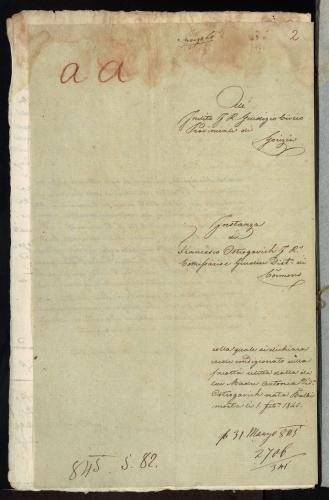 2
a a
All'
Inclito I. R. Giudizio Civico
Provinciale di
Gorizia
Instanza
di
Francesco Ostrogavich I. R.
Commissario e Giudice Dist. di
Cormons
colla quale si dichiara
erede condizionato sulla
facoltà relitta dalla di
lui Madre Antonia Ved.
Ostrogavich nata
li 1. 1845.
pr 31 Marzo 845
2706
845 S. 82.